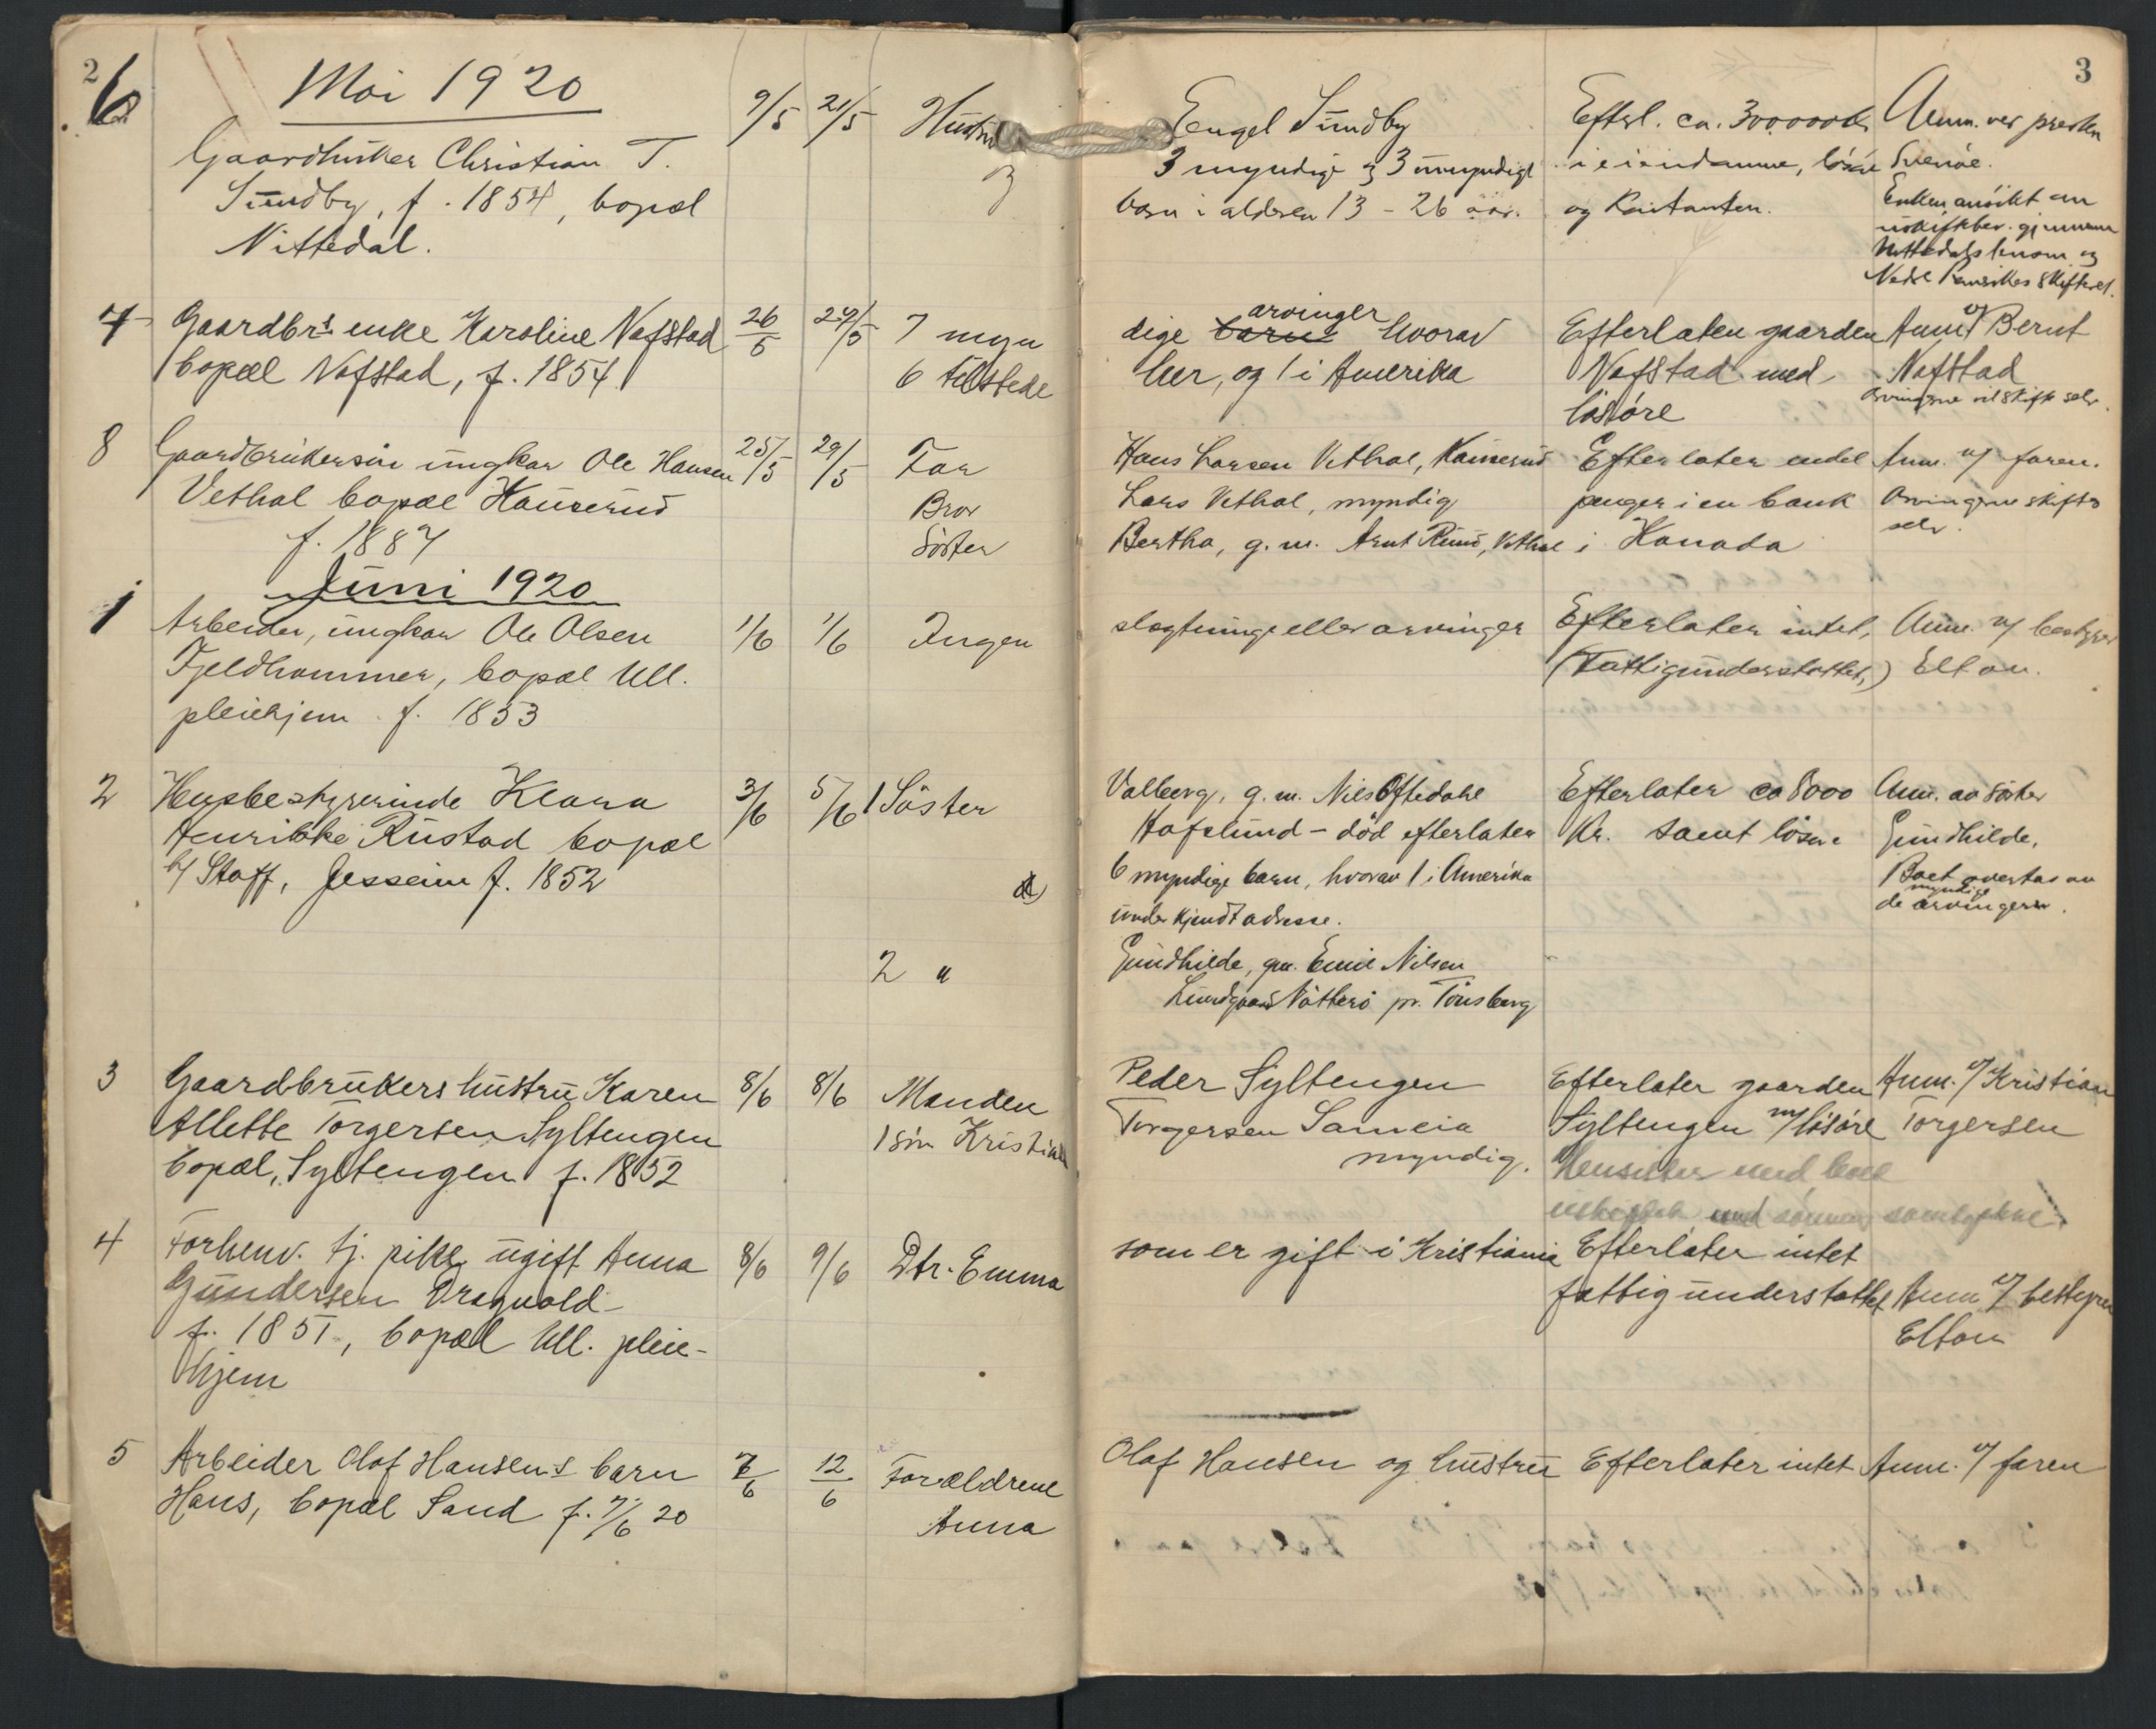 2
6
Mai 1920
Gaardbruker Christian T.
Sundby, f. 1854, bopæl
Nittedal.
9/5
21/5
Hustru
Engel Sundby
3 myndige og 3 umyndige
barn i alderen 13 - 26 aar.
Efterl. ca. 300000 kr
i eiendomme, løsøre
og kontanter.
Anm. ved presten
Enken ansökt om
uskiftebev. gjennem
Nittedals lensm. og
Nedre Romerikes skifteret.
7
Gaardbr.s enke Karoline Nafstad
bopæl Nafstad, f. 1854
26/5
29/5
7 myn
6 tilstede
dige barn arvinger hvorav
her, og 1 i Amerika
Efterlater gaarden
Nafstad med
løsøre
Anm. v/ Bernt
Nafstad
Arvingerne vil skifte selv.
8
Gaardbrukersøn ungkar Ole Hansen
Vethal bopæl Hauserud
f. 1887
25/5
29/5
Far
Bror
Søster
Hans Larsen Vethal, Hauserud
Lars Vethal, myndig
Bertha, g.m. Arnt Ruud, Vethal
Efterlater endel
penger i en bank
i Kanada
Anm. v/ faren.
Arvingerne skifter
selv.
Juni 1920
1
Arbeider, ungkar Ole Olsen
Fjeldhammer, bopæl Ull.
pleiehjem f. 1853
1/6
1/6
Ingen
slegtninge eller arvinger
Efterlater intet,
(Fattigunderstøttet,)
Anm. v/ bestyrer
Elton.
2
Husbestyrerinde Klara
Henrikke Rustad bopæl
h/ Staff, Jessheim f. 1852
3/6
5/6
1 Søster
2 "
Valborg, g.m. Nils Oftedahl
Hafslund - død efterlater
6 myndige barn, hvorav 1 i Amerika
under kjendt adresse.
Gundhilde, gm. Emil Nilsen
Lundgaard Nøtterø pr. Tønsberg
Efterlater ca 8000
kr. samt løsøre
Anm. av søster
Gundhilde.
Boet overtas av
de myndige arvingerne.
3
Gaardbrukers hustru Karen
Allette Torgersen Syltengen
bopæl, Syltengen f. 1852
8/6
8/6
Manden
1 søn Kristian
Peder Syltengen
Torgersen
myndig.
Efterlater gaarden
Syltengen m/ løsøre
Hensitter med boet
uskiftet med sønnens samtykke
Anm. v/ Kristian
Torgersen
4
Forhenv. tj. pike ugift Anna
Gundersen Dragvold
f. 1851, bopæl Ull. pleie-
hjem
8/6
9/6
Dtr. Emma
som er gift i Kristiania
Efterlater intet
fattigunderstøttet
Anm v/ bestyrer
Elton
5
Arbeider Olaf Hansens barn
Hans, bopæl Sand f. 7/6 20
7/6
12/6
Forældrene
Anna
Olaf Hansen og hustru
Efterlater intet
Anm. v/ faren
3